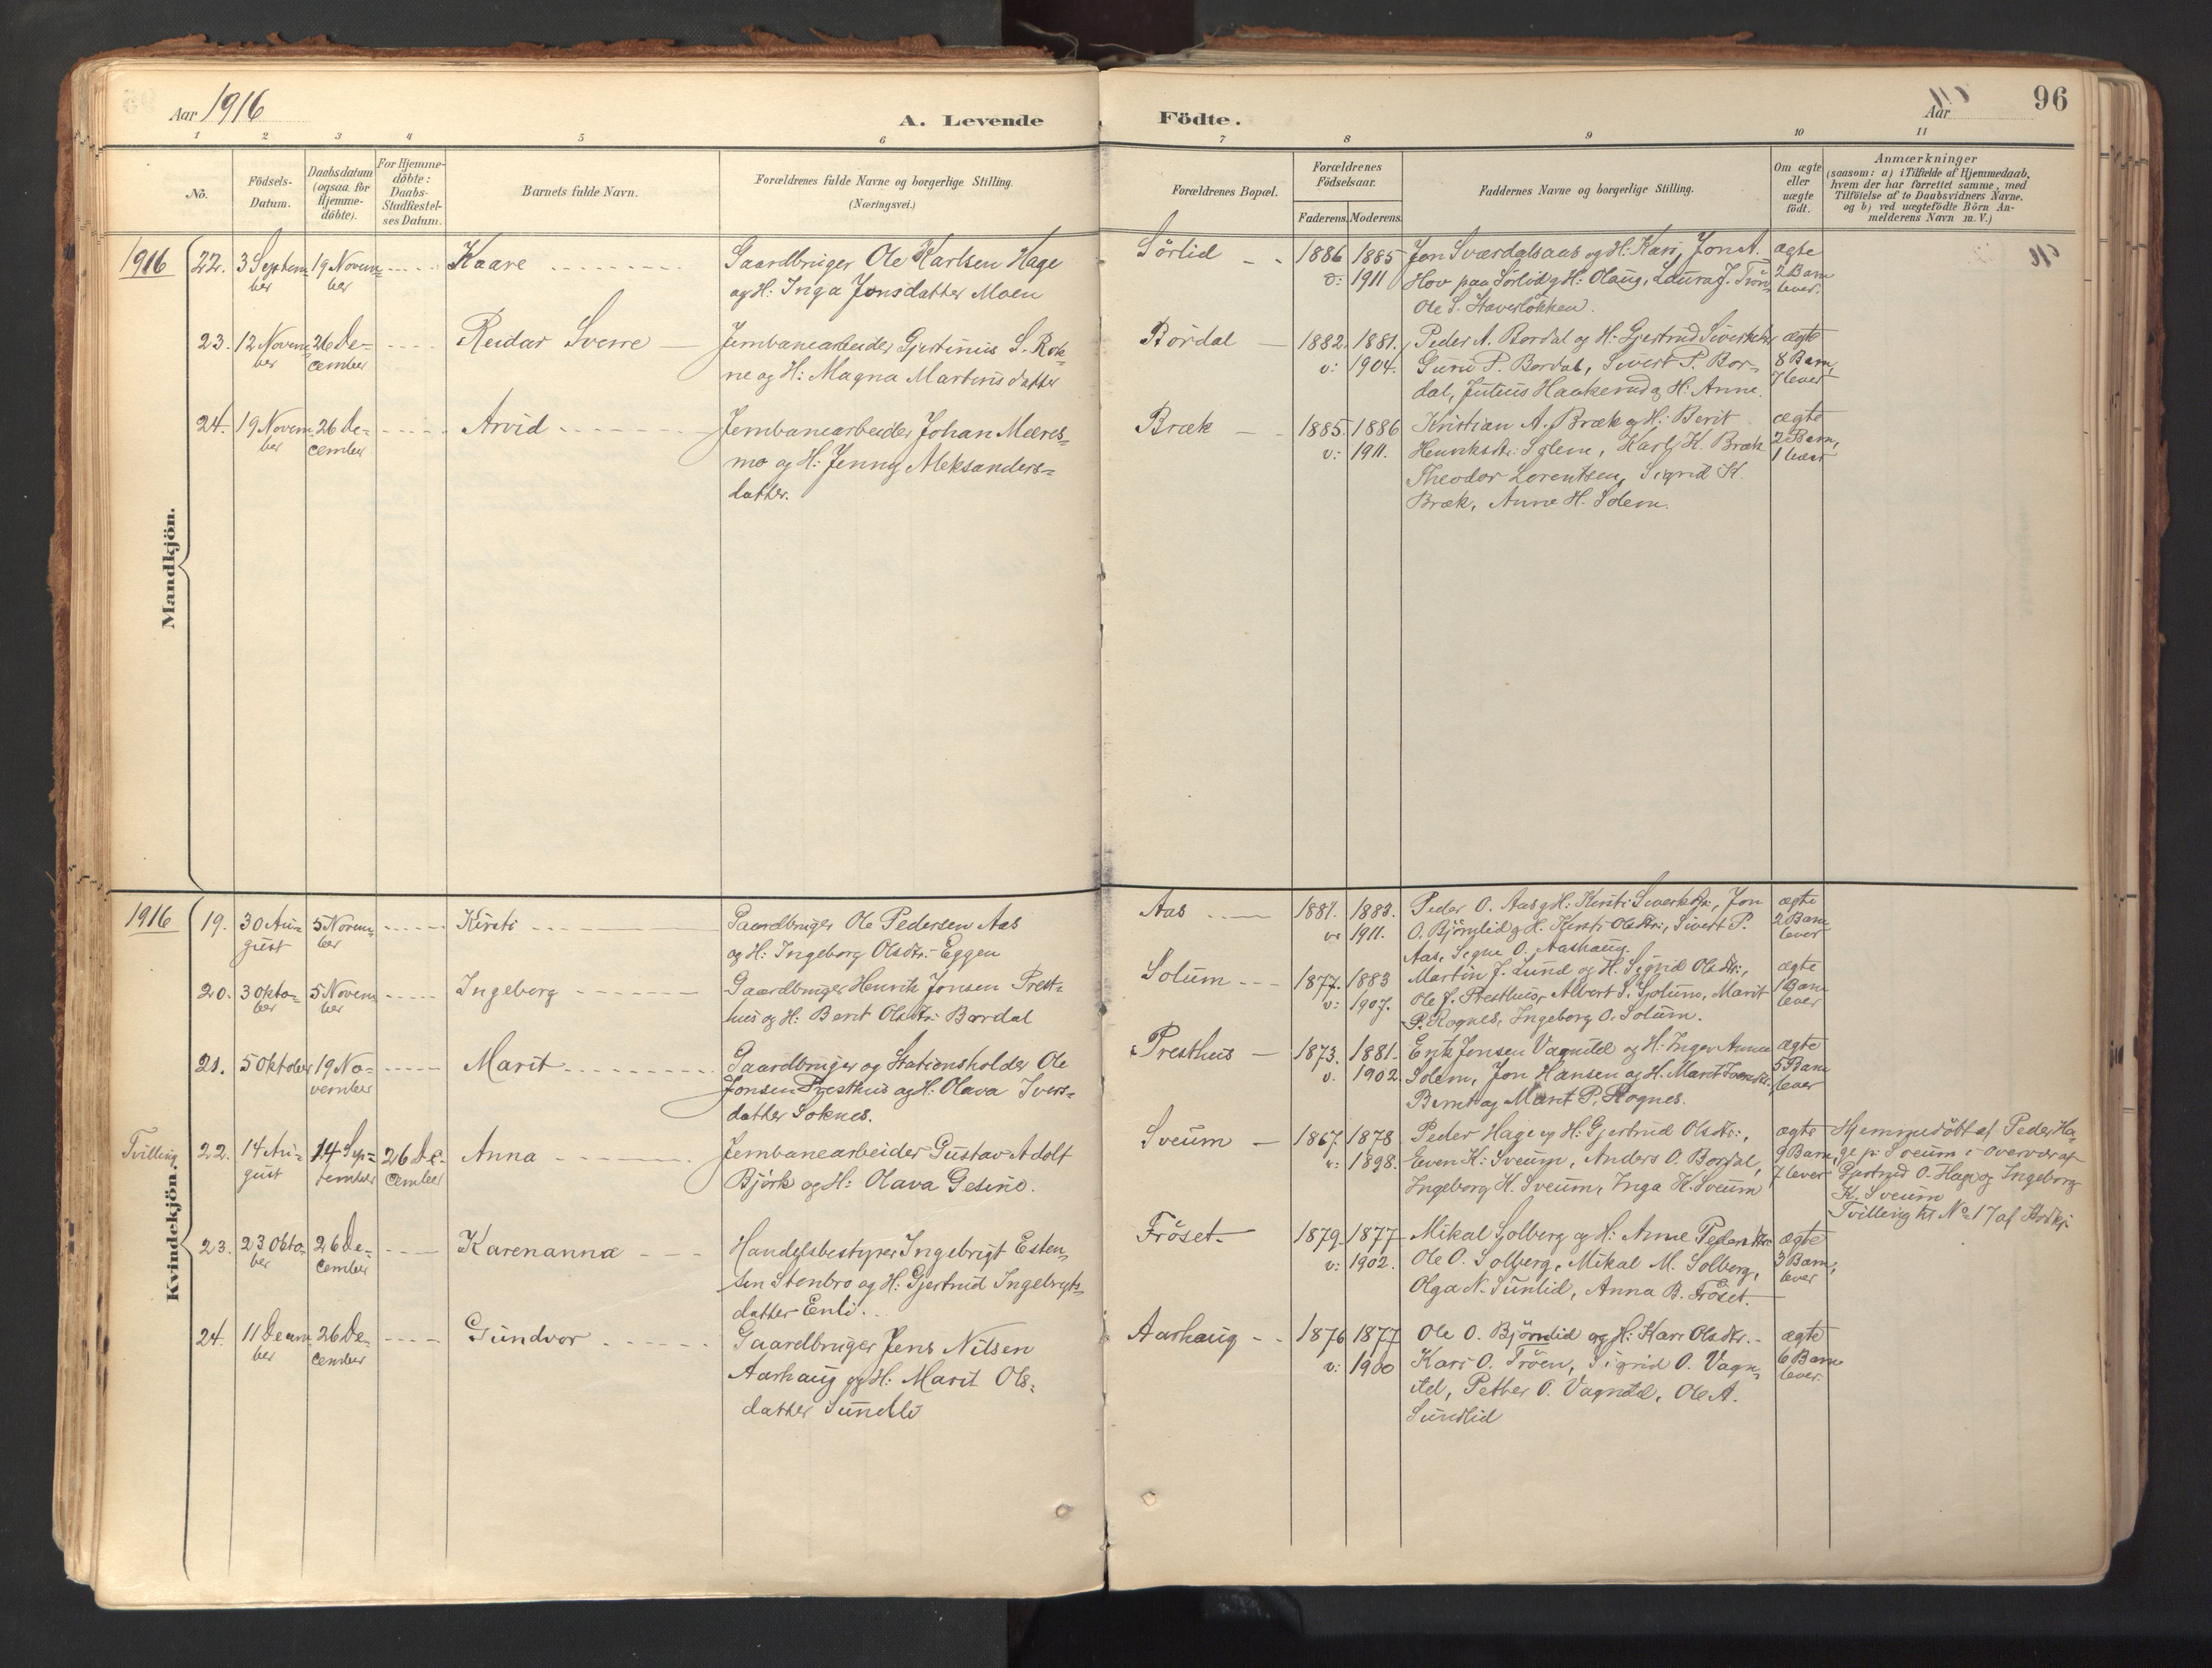 Aar 1916
A. Levende
Födte.
Aar
96
1 2 3 4 5 6 7 8 9 10 11
No.
Födsels-
Datum.
Daabsdatum
(ogsaa for
Hjemme-
döbte).
For Hjemme-
döbte:
Daabs-
Stadfæstel-
ses Datum.
Barnets fulde Navn.
Forældrenes fulde Navne og borgerlige Stilling.
(Næringsvei.)
Forældrenes Bopæl.
Forældrenes
Födselsaar.
Faderens. Moderens.
Faddernes Navne og borgerlige Stilling.
Om ægte
eller
uægte
födt.
Anmærkninger
(saasom: a) i Tilfælde af Hjemmedaab,
hvem der har forrettet samme, med
Tilföielse af to Daabsvidners Navne,
og b) ved uægtefödte Börn An-
melderens Navn m. V.)
Mandkjön.
1916
22.
3 Septem
ber
19 Novem
ber
Kaare
Gaardbruger Ole Karlsen Hage
og H: Inga Jonsdatter Moen
Sörlid
1886 1885
v: 1911
Jon Sværdalsaas og H: Kari, Jon A.
Hov paa Sörlid og H: Olaug, Laura J.
Ole S. Staverlökken.
ægte
2 Barn
lever.
23.
12 Novem
ber
26 De-
cember
Reidar Sverre
Jernbanearbeider Gjertinius S. Rok-
ne og H: Magna Martinisdatter
Bordal
1882. 1881.
v: 1904.
Peder A. Bordal og H: Gjertrud Siversdtr
Guru P. Bordal, Sivert P. Bor-
dal, Julius Haakerud og H: Anne.
ægte
8 Barn,
7 lever
24.
19 Novem
ber
26 De-
cember
Arvid
Jernbanearbeider Johan Meeres-
mo og H: Jenny Aleksanders-
datter.
Bræk
1885. 1886
v: 1911.
Kristian A. Bræk og H: Berit
Henriksdtr: Solem, Karl K. Bræk
Theodor Lorentsen, Sigrid K.
Bræk, Anne H. Solem.
ægte
2 Barn,
1 lever
Kvindekjön.
1916
19.
30 Au-
gust
5 Novem
ber
Kirsti
Gaardbruger Ole Pedersen Aas
og H: Ingeborg Olsdtr: Eggen
Aas
1881. 1883.
v: 1911.
Peder O. Aas og H: Kirsti Siversdtr, Jon
O. Björnlid og H. Kirsti Olsdtr:, Sivert P.
Aas, Signe O. Aashaug.
ægte
2 Barn
lever
20.
3 Okto-
ber
5 Novem
ber
Ingeborg
Gaardbruger Henrik Jonsen Prest-
hus og H: Berit Olsdtr: Bordal
Solum
1877. 1883
v: 1907.
Martin J. Lund og H. Sigrid Olsdtr:,
Ole J. Presthus, Albert S. Solum, Marit
P. Rognes, Ingeborg O. Solum.
ægte
1 Barn
lever
21.
5 Oktober
19 No-
vember
Marit
Gaardbruger og Stationsholder Ole
Jonsen Presthus og H: Olava Ivers-
datter Soknes.
Presthus
1873. 1881.
v. 1902.
Erik Jonsen Vagnild og H: Inger Anna
Solem, Jon Hansen og H. Marit
Bernt og Marit P. Rognes.
ægte
5 Barn
lever
Tvilling.
22.
14 Au-
gust
14 Sep-
tember
26 De-
cember
Anna
Jernbanearbeider Gustav Adolf
Björk og H: Olava Gesine.
Sveum
1867. 1878
v: 1898.
Peder Hage og H: Gjertrud Olsdtr:,
Even K: Sveum, Anders O. Bordal,
Ingeborg K. Sveum, Inga K. Sveum
ægte
9 Barn,
7 lever
Hjemmedöbt af Peder Ha-
ge p: Sveum i Overvær af
Gjertrud O. Hage og Ingeborg
K. Sveum
Tvilling til No 17 af Mndkj.
23.
23 Okto-
ber
26 De-
cember
Karenanna
Handelsbestyrer Ingebrigt Esten-
sen Stenbro og H: Gjertrud Ingebrigts-
datter Enli.
Fröset
1879. 1877
v: 1902.
Mikal Solberg og H: Anne Pedersdtr:
Ole O. Solberg, Mikal M. Solberg,
Olga N. Sunlid, Anna B. Fröset.
ægte
3 Barn,
lever
24.
11 Decem
ber
26 De-
cember
Gundvor
Gaardbruger Jens Nilsen
Aarhaug og H: Marit Ols-
datter Sundli
Aarhaug
1876 1877
v: 1900
Ole O. Björnlid og H: Kari Olsdtr.
Kari O. Tröen, Sigrid O. Vagn-
ild, Petter O. Vagnild, Ole A.
Sundlid
ægte
6 Barn
lever.